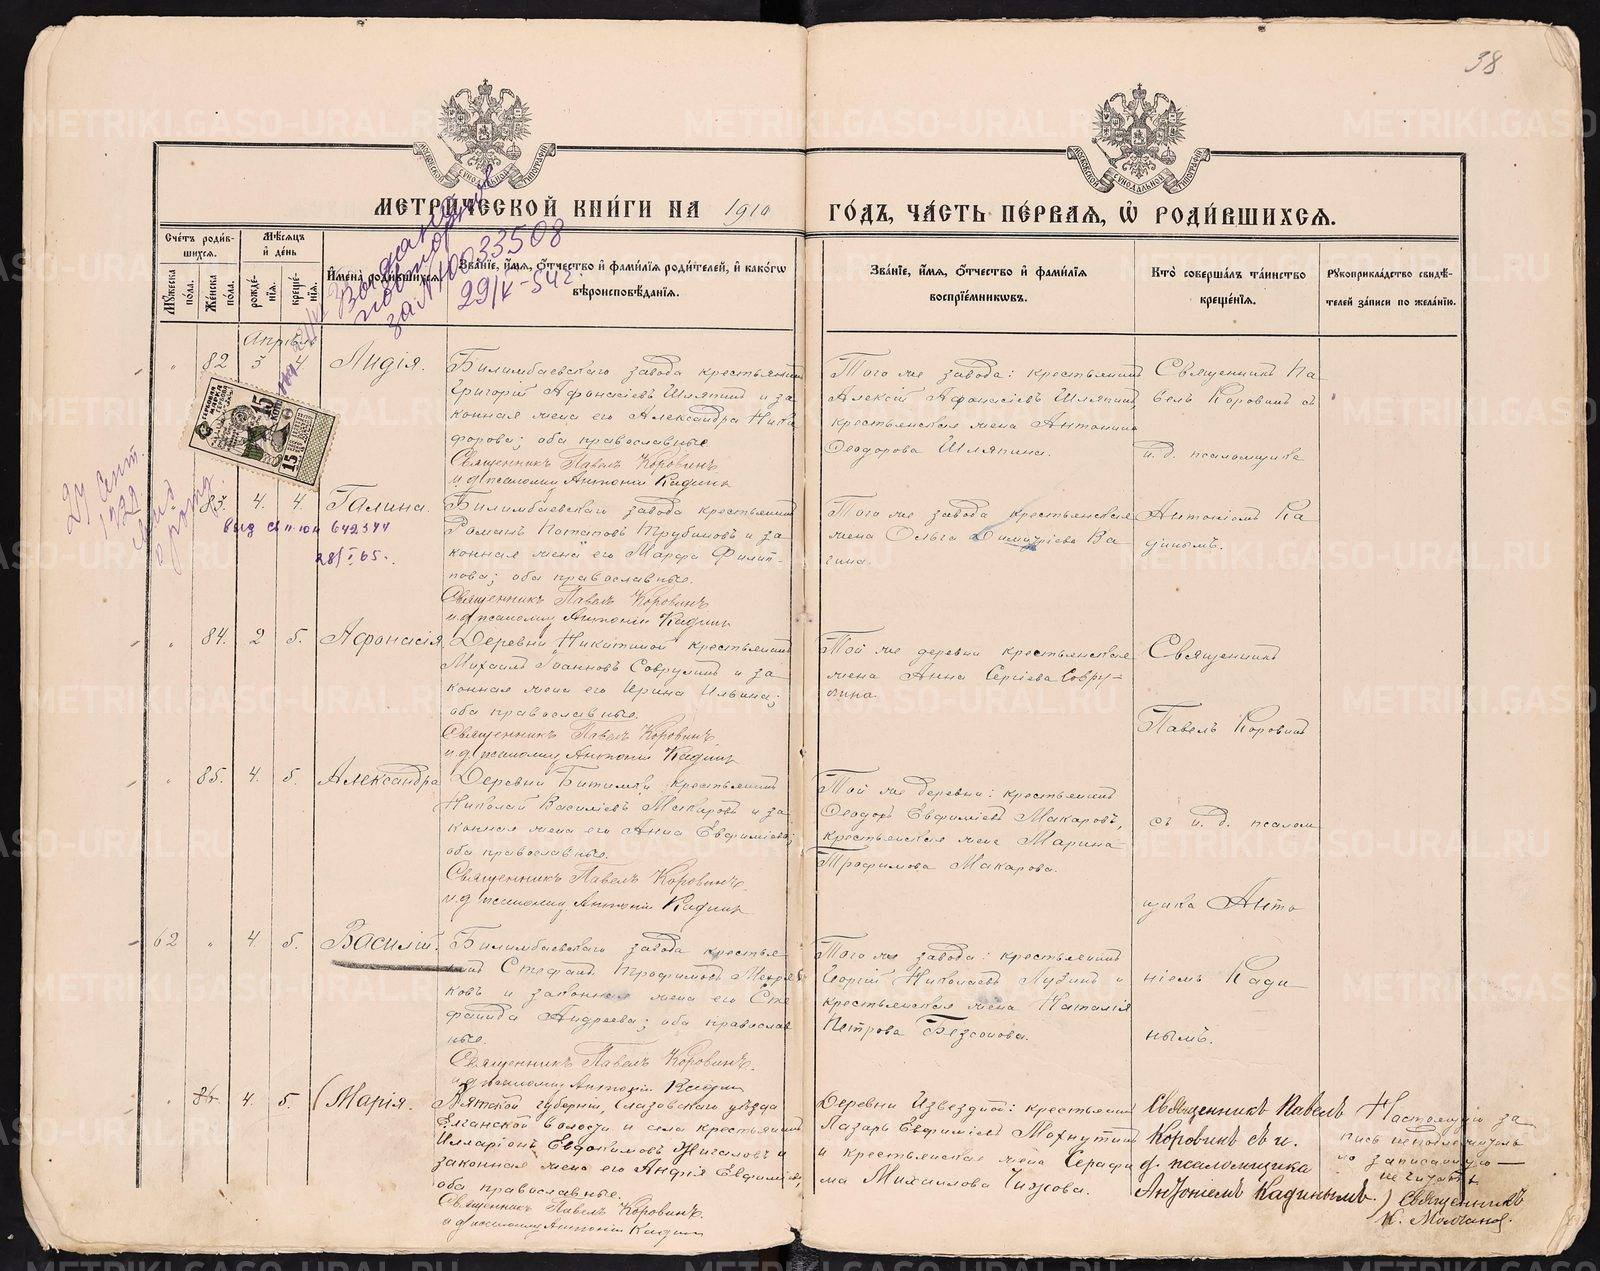 38
МЕТРИ́ЧЕСКОЙ КНИ́ГИ НА 1910 ГО́ДЪ, ЧА́СТЬ ПЕ́РВАЯ, Ѡ҆ РОДИ́ВШИХСѦ.
Сче́тъ роди́в-
шихся.
Му́жеска пола.
Же́нска пола.
Мѣ́сяцъ
и҆ де́нь
рожде́-
нїѧ.
креще́-
нїѧ.
И҆мена̀ роди́вшихся.
Зва́нїе, и҆́мя, ѻ҆́тчество и҆ фами́лїя роди́телей, и҆ како́гѡ
вѣроисповѣ́данїя.
Зва́нїе, и҆́мя, ѻ҆́тчество и҆ фами́лїя
воспрїе́мниковъ.
Кто̀ соверша́лъ та́инство
креще́нїя.
Рꙋкоприкла́дство свидѣ́-
телей за́писи по жела́нїю.
повторное
29/V-54г
Апрѣль
82 3 4 Лидія.
Билимбаевскаго завода крестьянинъ
Григорій Афанасіевъ Шляпинъ и за-
конная жена его Александра Ники-
форова; оба православные.
Священникъ Павелъ Коровинъ
и д псаломщ Антоній Кадинъ
Того же завода: крестьянинъ
Алексій Афанасіевъ Шляпинъ,
крестьянская жена Антонина
Ѳеодорова Шляпина.
Священникъ Па-
велъ Коровинъ съ
и. д. псаломщика
15 КОП.
15
27 Сент.
83. 4. 4. Галина.
642344
28/I 65.
Билимбаевскаго завода крестьянинъ
Романъ Потаповъ Трубиновъ и за-
конная жена его Марѳа Филип-
пова; оба православные.
Священникъ Павелъ Коровинъ
и д псаломщ Антоній Кадинъ
Того же завода крестьянская
жена Ольга Димитріева Ва-
гина.
Антоніемъ Ка-
динымъ.
84. 2 5. Афонасія
Деревни Никитиной крестьянинъ
Михаилъ Іоанновъ Соврулинъ и за-
конная жена его Ирина Ильина;
оба православные.
Священникъ Павелъ Коровинъ
и д псаломщ Антоній Кадинъ
Той же деревни крестьянская
жена Анна Сергіева Совру-
лина.
Священникъ
Павелъ Коровинъ
85. 4. 5. Александра
Деревни Битимки крестьянинъ
Николай Василіевъ Макаровъ и за-
конная жена его Анна Евфиміева;
оба православные.
Священникъ Павелъ Коровинъ.
и д псаломщ Антоній Кадинъ
Той же деревни: крестьянинъ
Ѳеодоръ Евфиміевъ Макаровъ,
крестьянская жена Марина
Трофимова Макарова.
съ и. д. псалом
щика Анто
62 4. 5. Василій.
Билимбаевскаго завода крестья-
нинъ Стефанъ Трофимовъ
ковъ и законная жена его Сте
фанида Андреева; оба православ
ные.
Священникъ Павелъ Коровинъ.
и д псаломщ Антоній Кадинъ
Того же завода: крестьянинъ
Георгій Николаевъ Лузинъ и
крестьянская жена Наталія
Петрова Безсонова.
ніемъ Кади
нымъ.
86 4. 5. (Марія.
Вятской губерніи, Глазовскаго уѣзда
Елганской волости и села крестьянинъ
Илларіонъ Евдокимовъ Жигаловъ и
законная жена его Евфиміева,
оба православные.
Священникъ Павелъ Коровинъ.
и д псаломщ Антоній Кадинъ
Деревни Извездной: крестьянинъ
Лазарь Евфиміевъ Махнутинъ
и крестьянская жена Серафи
ма Михаилова Чижова.
Священникъ Павелъ
Коровинъ съ и.
д. псаломщика
Антоніемъ Кадинымъ.)
Настоящую за
пись неподлежатель
но записанную —
не читать
Священникъ
К. Молчанов.
METRIKI.GASO-URAL.RU